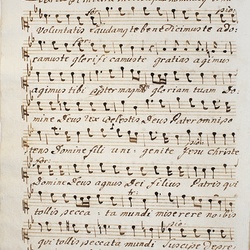 Voluntatis Laudamus te benedicimus te ado-
ramus te glorificamus te gratias agimus
agimus tibi propter magnam gloriam tuam Do-
mine Deus Rex Coelestis Deus Pater omnipo
tens Domine fili uni genite Jesu Christe
Domine Deus agnus Dei filius Patris qui
tollis pecca-ta mundi miserere nobis
qui tollis peccata mundi Suscipe